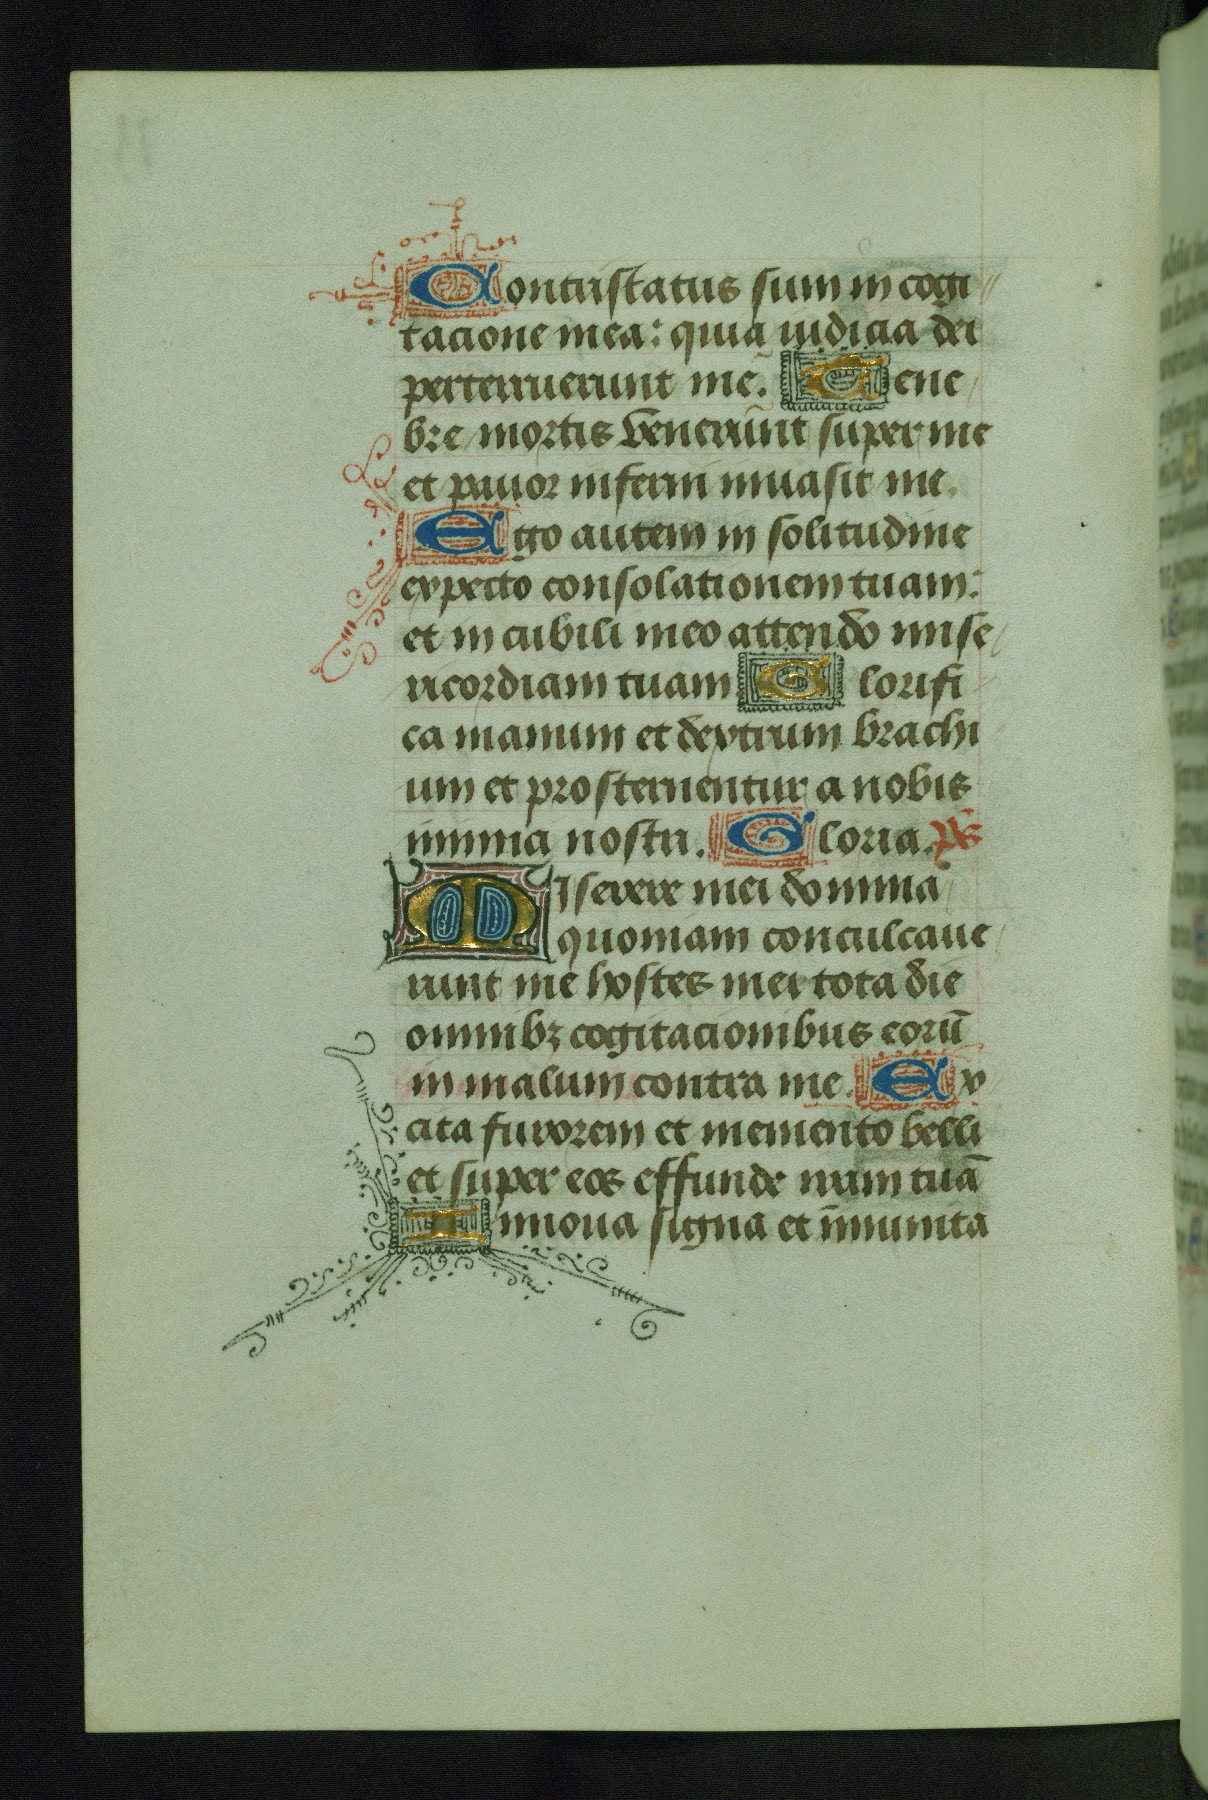 Contristatus sum in cogi
tacione mea: quia iudicia dei
perterruerunt me. Tene
bre mortis venerunt super me
et pauor inferni inuasit me.
Ego autem in solitudine
expecto consolationem tuam:
et in cubili meo attendo mise
ricordiam tuam Glorifi
ca manum et dextrum brachi
um et prosternentur a nobis
inimici nostri. Gloria. ps
Miserere mei domina
quoniam conculcaue
runt me hostes mei tota die
omnibꝫ cogitacionibus eorū
in malum contra me. Ex
cita furorem et memento belli
et super eos effunde iram tuā
Innoua signa et īmunita